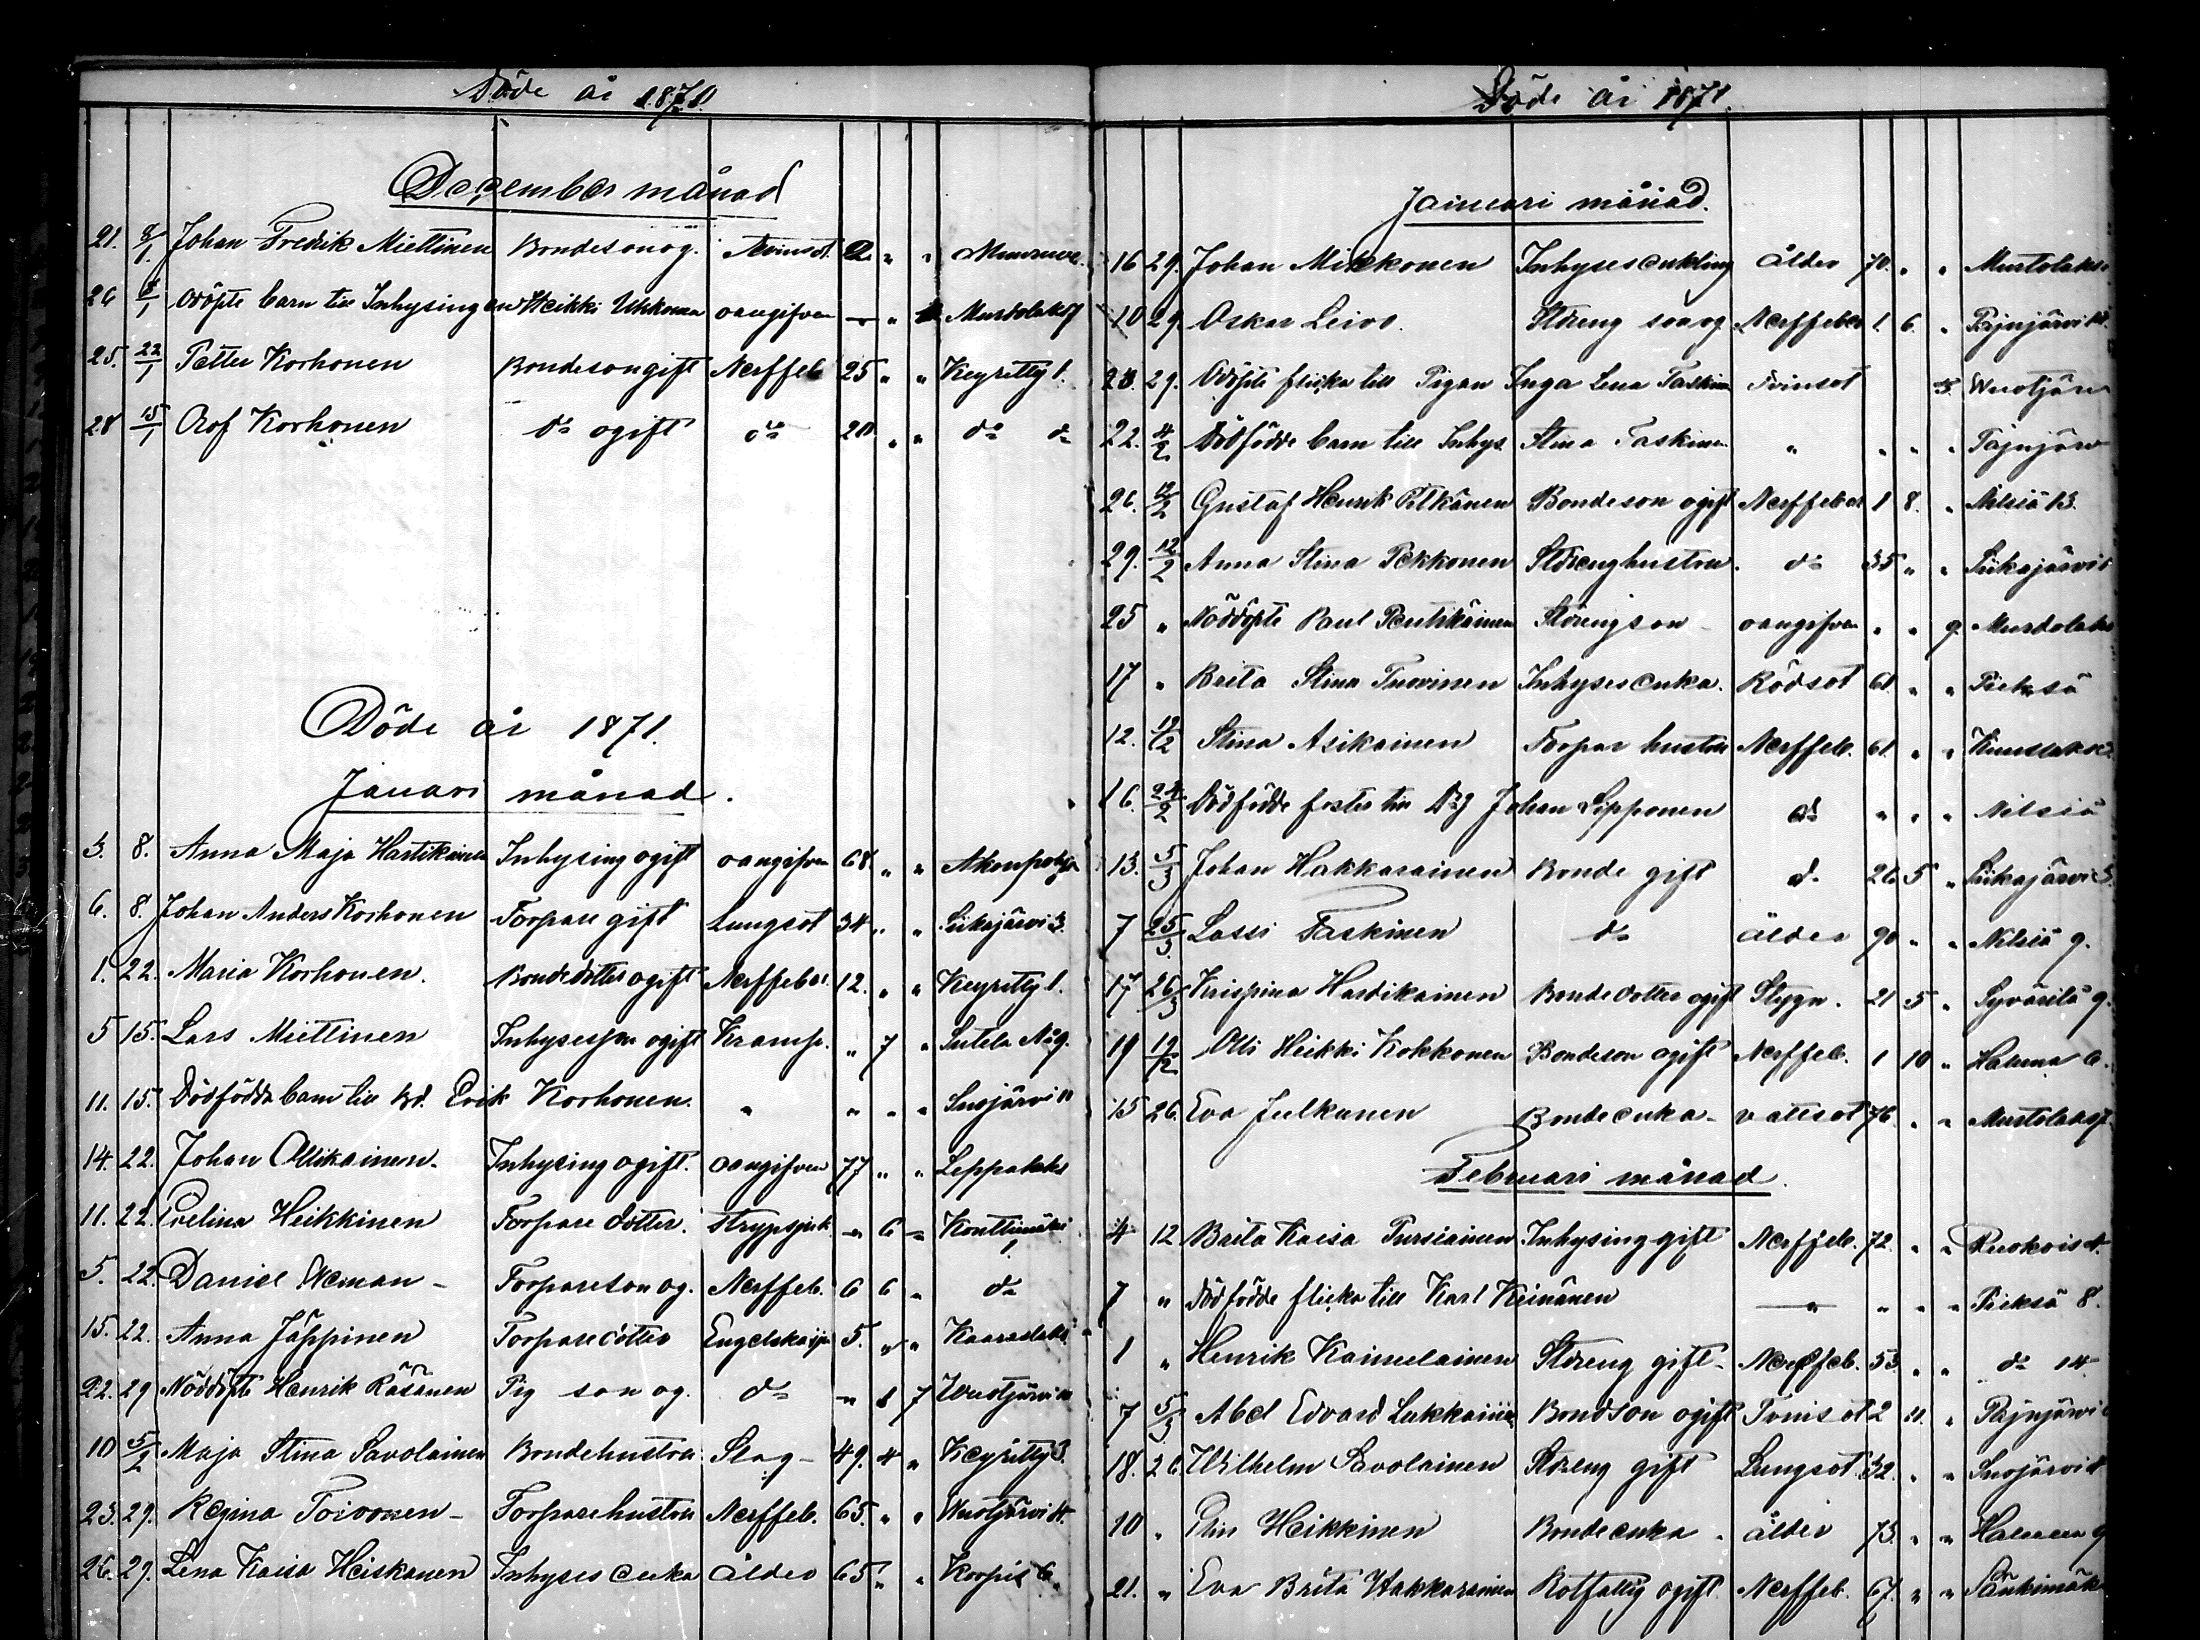 Döde år 1871.
December månad
21. 8/1 Johan Fredrik Miettinen Bondeson og. Tvinsot. 2 " "
26 8/1 Odöpte barn till Inhysingen Heikki Uhkonen oangifven — " Murtolaks 7
25. 22/1 Petter Korhonen Bondeson gift Nerffeb 25 " " Keyritty 1.
28 15/1 Olof Korhonen do ogift do 20 " " do do
Döde år 1871.
Januari månad.
3. 8. Anna Maja Hartikainen Inhysing ogift oangifven 68. " " Akonpohja
6. 8. Johan Anders Korhonen Torpare gift Lungsot 34 " " Siikajärvi 3.
1. 22. Maria Korhonen. Bondedotter ogift Nerffeber 12. " " Keyritty 1.
5 15. Lars Miettinen Inhyseson ogift Kramp. " 7 " Sutela No 9.
11. 15. Dödfödde barn till Bd. Erik Korhonen. " " " " Suojärvi 11
14. 22. Johan Ollikainen. Inhysing ogift. oangifven 77 " " Leppälaks
11. 22. Evelina Heikkinen Torpare dotter. Strypsjuk. " 6 " Konttimäki 1
5. 22. Daniel Neman Torpareson og. Nerffeb. 6 6 " do
15. 22. Anna Jäppinen Torparedotter Engelska sju 5. " " Kaaraslaks
22. 29 Nöddöpte Henrik Räsänen Pig son og. do " 1 7 Wuotjärvi 11
10 5/2 Maja Stina Savolainen Bondehustru Slag 49. 4 " Keyritty 3.
23. 29. Regina Toivonen Torparehustru Nerffeb. 65. " " Wuotjärvi 4.
26. 29. Lena Kaisa Heiskanen Inhyses enka Ålder 65 " " Korpis 6.
Döde år 1871.
Januari månad.
16 29. Johan Mikkonen Inhysesenkling ålder 70. " " Murtolaks
10 29 Oskar Leivo. Stdreng son og Nerffeber 1 6. " Pajujärvi
23. 29. Odöpte flicka till Pigan Inga Lena Taskinen Tvinsot 3 Wuotjärv
22. 4/2 Dödfödde barn till Inhys. Stina Taskinen " " " " Pajujärv
26. 12/2 Gustaf Henrik Pitkänen Bondeson ogift Nerffeber 1 8. " Nilsiä 13.
29. 12/2 Anna Stina Pekkonen Stdrenghustru. do 35 " " Siikajärvi
25 " Nöddöpte Paul Pentikäinen Stdrengson oangifven " " 9 Murtolaks
17 " Brita Stina Tuovinen Inhysesenka. Rödsot 61 " " Pieksä
12. 19/2 Stina Asikainen Torpar hustru Nerffeb. 61. " "
16. 24/2 Dödfödde foster till Dr̄g Johan Lipponen do " " " Nilsiä
13. 5/3 Johan Hakkarainen Bonde gift d. 26. 5 " Siikajärvi 3
7 25/3 Lassi Taskinen do ålder 90 " " Nilsiä 9.
17 26/3 Krispina Hartikainen Bondedotter ogift Stygn. 21 5 " Syväritä 9.
19 19/2 Olli Heikki Kokkonen Bondeson ogift Nerffeb. 1 10 " Haluna 6.
15 26. Eva Julkunen Bonde enka vattsot 76. " " Murtolaks 7.
Februari månad.
4 12 Brita Kaisa Pursiainen Inhysing gift Nerffeb. 72. " "
7 " Dödfödde flicka till Karl Keinänen — " " " Pieksä 8.
1 " Henrik Kainulainen Stdreng gift Nerffeb. 53. " " do 14
7 5/3 Abel Edvard Lukkainen Bondson ogift Tvinsot 2 11. " Pajujärvi
18. 26. Wilhelm Savolainen Stdreng gift Lungsot. 32. " " Suojärvi
10 " Elin Heikkinen Bonde enka ålder 73. " " Haluna 9
21. " Eva Brita Hakkarainen Rotfattig ogift. Nerffeb. 67. " " Pänkimäki